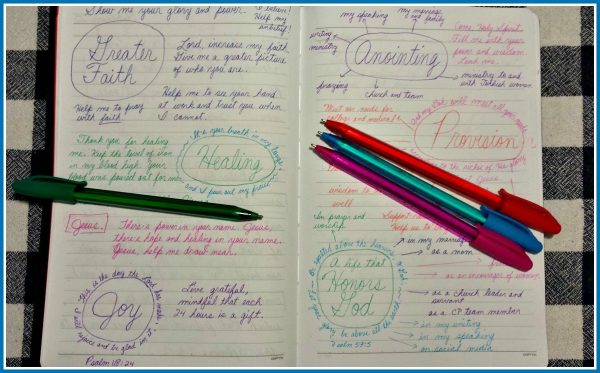 Show me your glory and power.
I believe!
Help my
unbelief!
Greater
Faith
Lord, increase my faith.
Give me a greater picture
of who you are.
Help me to see your hand
at work and trust you when
I cannot.
Help me to pray
with faith.
Thank you for healing
me. Keep the level of iron
in my blood high. Your
blood was poured out for me.
It's your breath in my lungs
and I pour out my praise
Healing
Jesus.
There's power in your name. Jesus,
there's hope and healing in your name.
Jesus, help me draw near.
This is the day the Lord has made; I will rejoice and be glad in it.
Joy
Psalm 118:24
Love grateful,
mindful that each
24 hours is a gift.
my speaking
my marriage
and family
writing
ministry
Anointing
praying
church and team
ministry to and
with Turkish women
Come Holy Spirit.
Fill me with your
power and wisdom.
Lead me.
Meet our needs for
college and medical
And my God will meet all your needs
to the riches of his glory
Jesus.
Provision
wisdom to
well.
In prayer and
worship.
Support
Help us to
A life that
Honors
God
be above all the earth
Psalm 57:5
in my marriage
as a mom
as an encourager of women
as a church leader and
servant
as a CP team member
in my writing
in my speaking
on social media